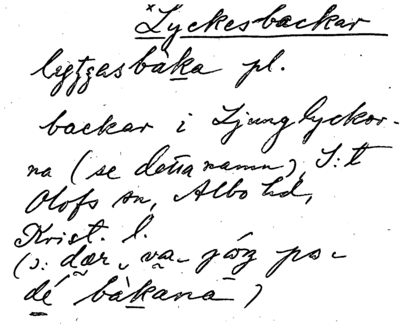 *Lyckesbackar
lyckas­bàka pl.
backar i Ljunglyckor-
na (se detta namn), S:t
Olofs sn, Albo hd,
Krist. l.
(ɔ: dær va po
dé bàkana)